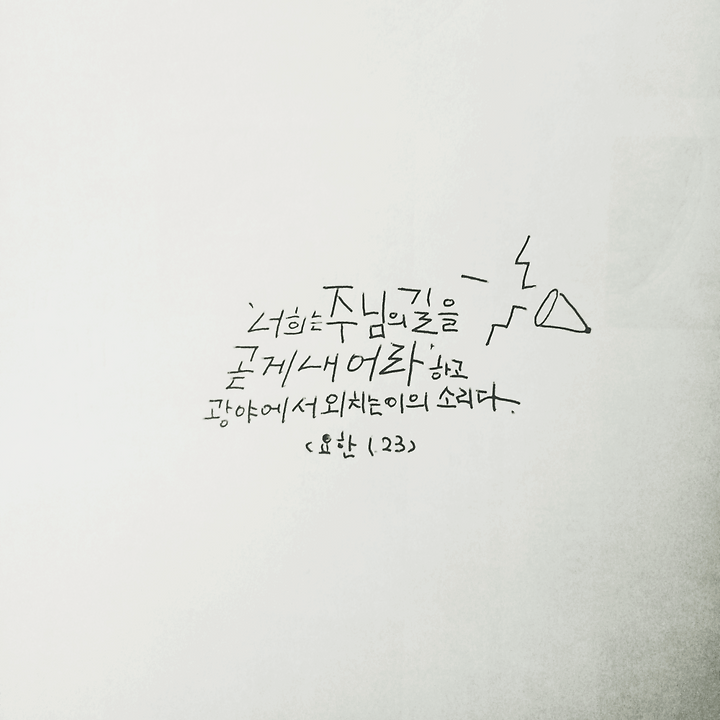 '너희는 주님의 길을
곧게 내어라' 하고
광야에서 외치는 이의 소리다.
<요한 1.23>